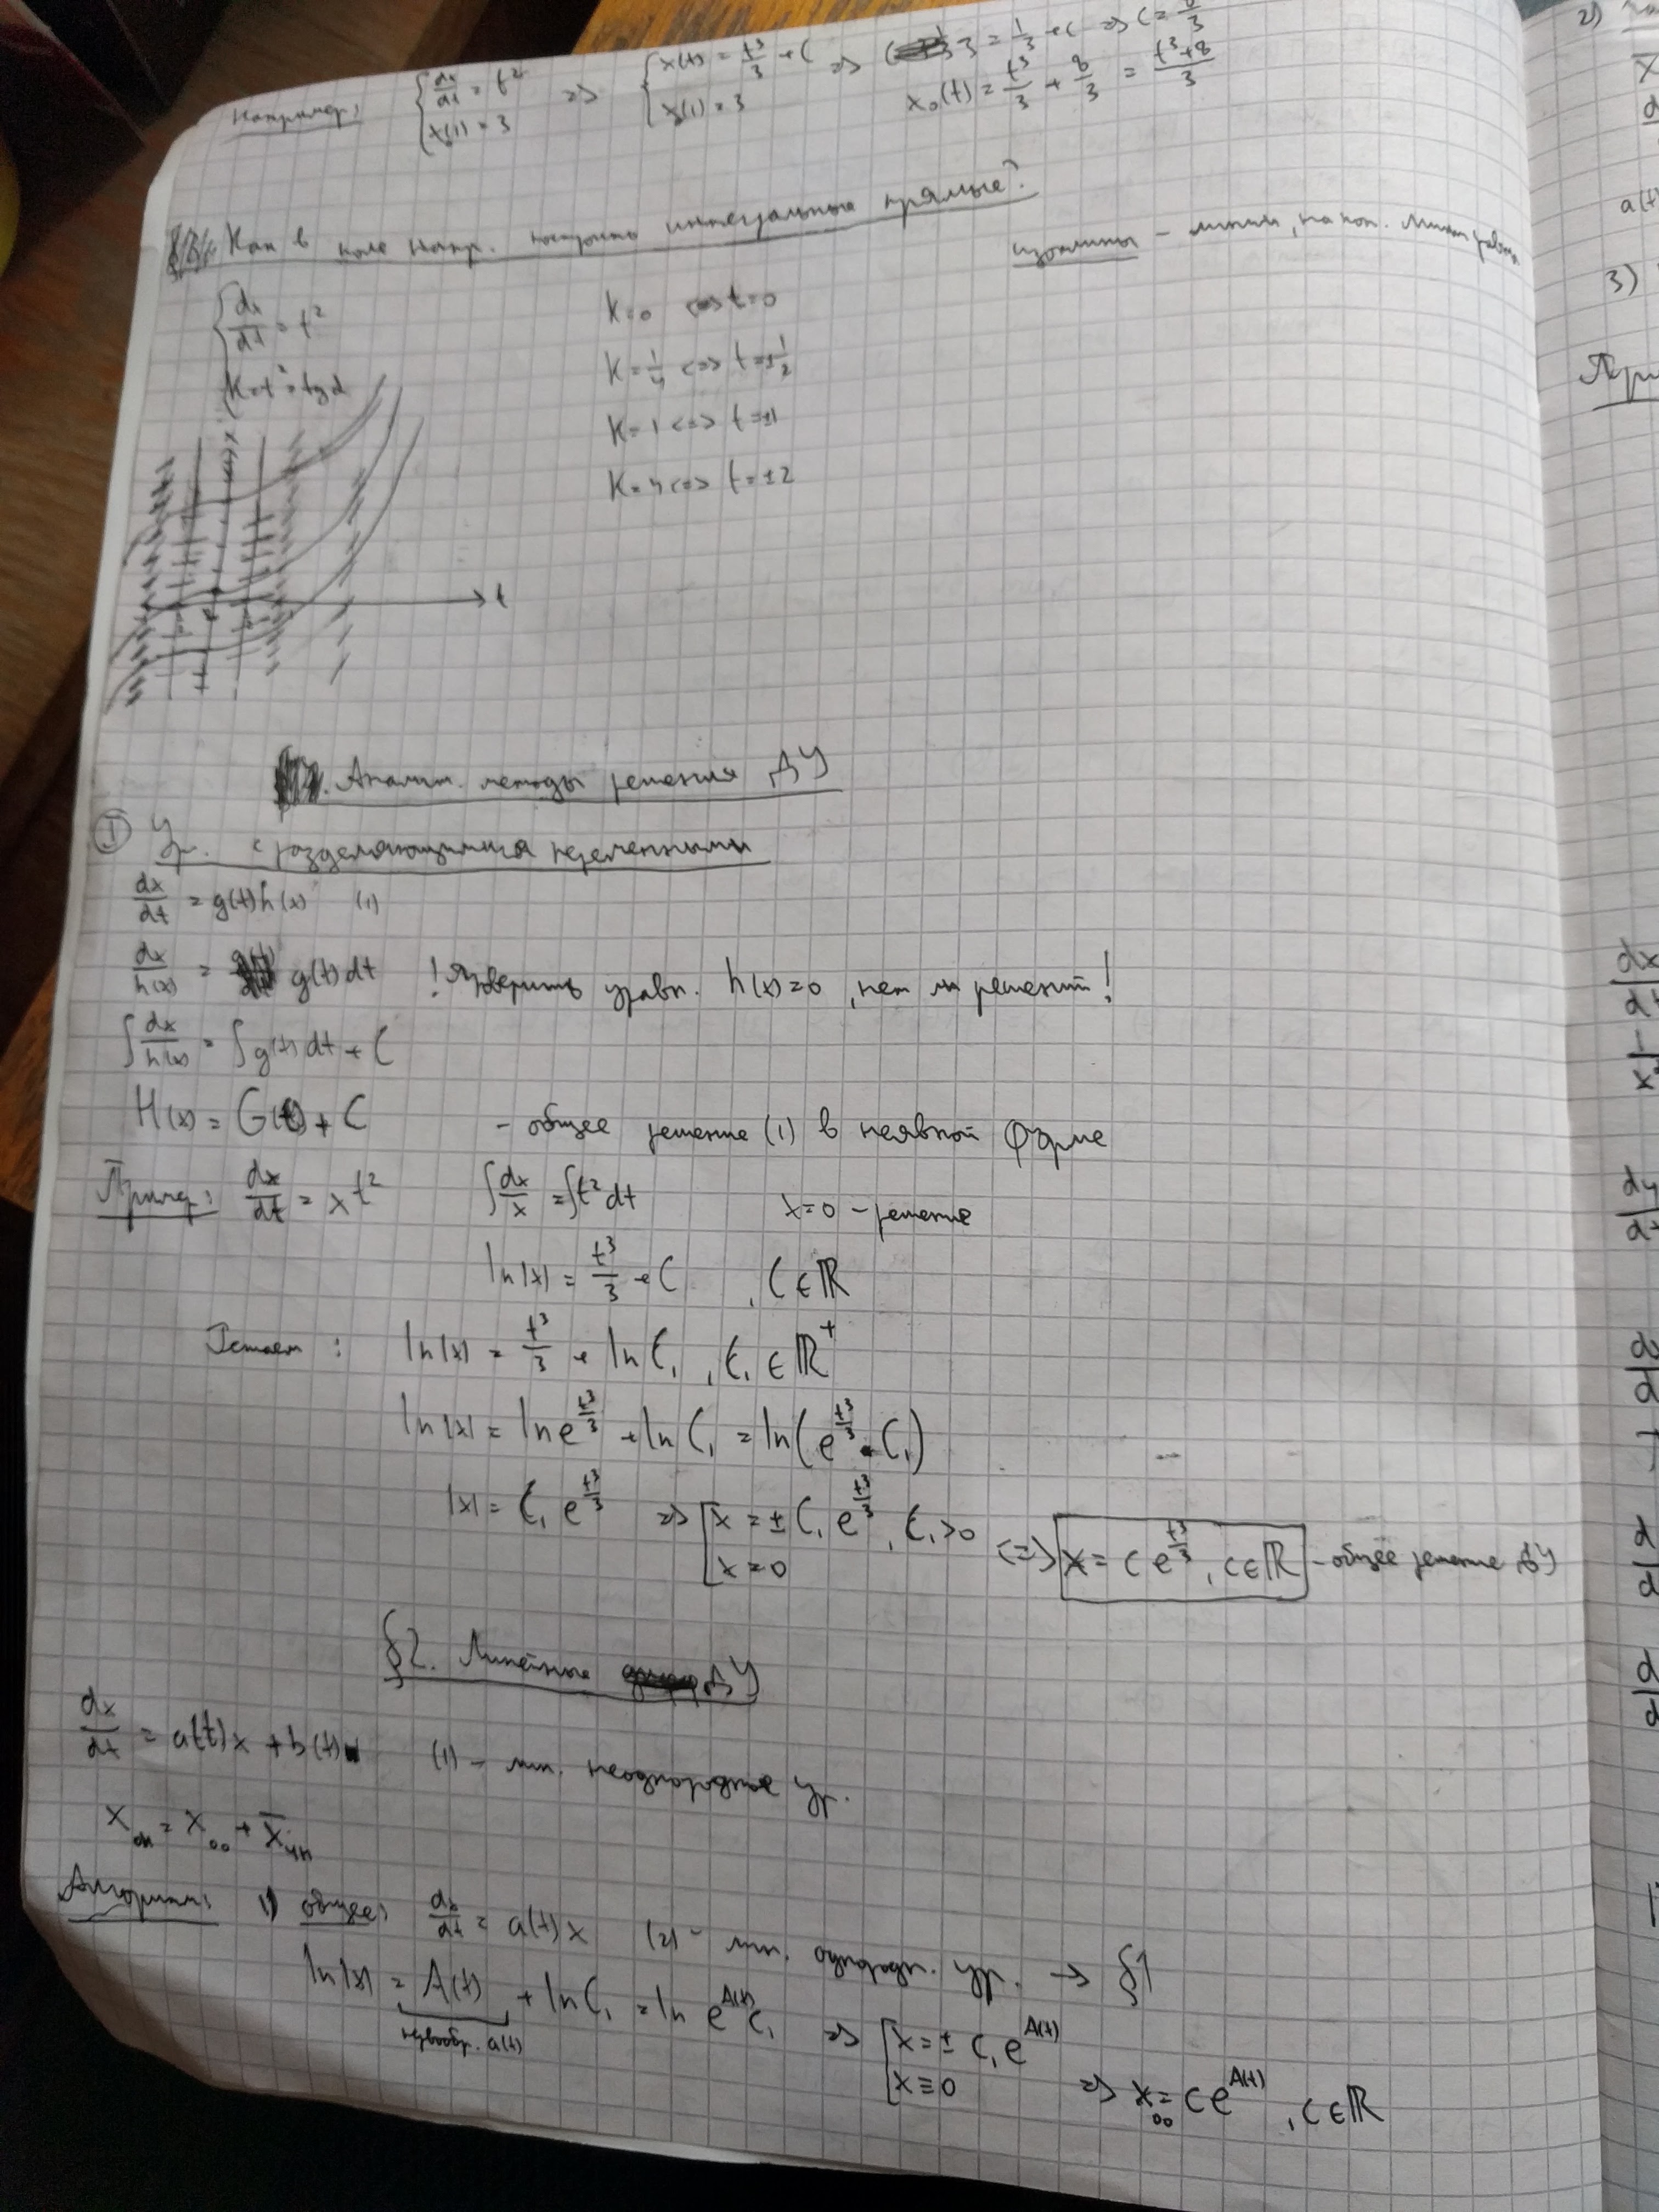 Например: { dx/dt = t² x(1) = 3 => { x(t) = t³/3 + C x(1) = 3 => 3 = 1/3 + C => C = 8/3
x₀(t) = t³/3 + 8/3 = (t³+8)/3
Как в поле напр. построить интегральные прямые?
изоклины - линии, на кот.
{ dx/dt = t²
K = t² = tg α
K=0 <=> t=0
K=1/4 <=> t=±1/2
K=1 <=> t=±1
K=4 <=> t=±2
x
t
Аналит. методы решения ДУ
I Ур. с разделяющимися переменными
dx/dt = g(t)h(x) (1)
dx/h(x) = g(t)dt ! Проверить уравн. h(x)=0, нет ли решений!
∫dx/h(x) = ∫g(t)dt + C
H(x) = G(t) + C - общее решение (1) в неявной форме
Пример: dx/dt = xt² ∫dx/x = ∫t²dt x=0 - решение
ln|x| = t³/3 + C, C∈ℝ
ln|x| = t³/3 + ln C₁, C₁∈ℝ⁺
ln|x| = ln e^(t³/3) + ln C₁ = ln(e^(t³/3) · C₁)
|x| = C₁ e^(t³/3) => [ x = ± C₁ e^(t³/3), C₁>0 x=0 <=> x = C e^(t³/3), C∈ℝ - общее решение ДУ
§2. Линейные ДУ
dx/dt = a(t)x + b(t) (1) - лин. неоднородное ур.
x_он = x_оо + x̄_чн
Алгоритм: 1) общее: dx/dt = a(t)x (2) - лин. однородн. ур. → §1
ln|x| = A(t) + ln C₁ = ln e^A(t) C₁ => [ x = ± C₁ e^A(t) x ≡ 0 => x_оо = C e^A(t), C∈ℝ
первообр. a(t)
2)
3)